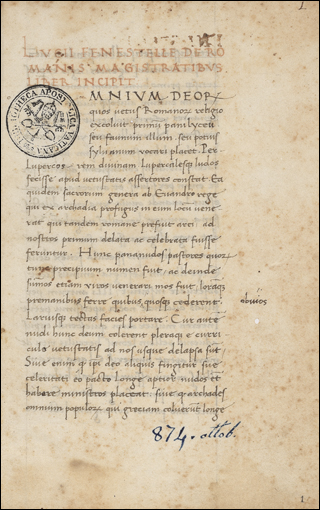 LVCII FENESTELLE DE RO
MANIS MAGISTRATIBVS
LIBER INCIPIT
MNIVM DEOR
quos uetus Romanor religio
excoluit primu pana lyceu
seu faunum illum, seu potius
syluanum uocari placet. Per
Lupercos rem diuinam Lupercalesq ludos
fecisse apud uetustatis assertores constat. Ea
quidem sacrorum genera ab Euandro rege
qui ex archadia profugus in eum locu uene
rat qui tandem romane prefuit arci. ad
nostros primum delata ac celebrata fuisse
feruntur. Hunc pana nudu pastores quor
tutus precipuum numen fuit, ac deinde
etiam uiros uenerari mos fuit. loraq
premanibus ferre quibus quosq cederent.
Laruisq tectas facies portare. Cur autē
nudi hunc deum colerent pleraq e curri
culo uetustatis ad nos usque delapsa sūt.
Siue enim q ipsi deo aliquis fingitur sue
celeritati eo pacto longe aptior nudos et
habere ministros placeat. siue q archades
omnium populor qui greciam coluerut longe
obuios
874. ottob.
1